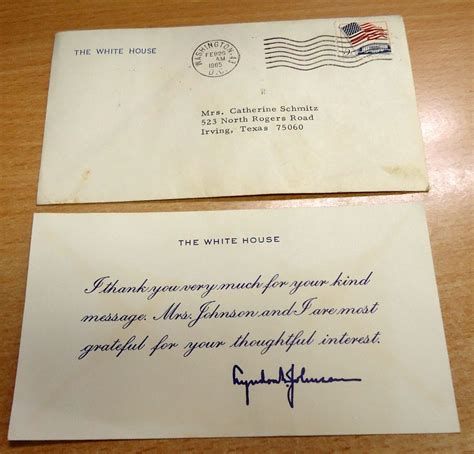 THE WHITE HOUSE
WASHINGTON
FEB
AM
1965
D.C.
Mrs. Catherine Schmitz
523 North Rogers Road
Irving, Texas 75060
THE WHITE HOUSE
I thank you very much for your kind
message. Mrs. Johnson and I are most
grateful for your thoughtful interest.
Lyndon B. Johnson